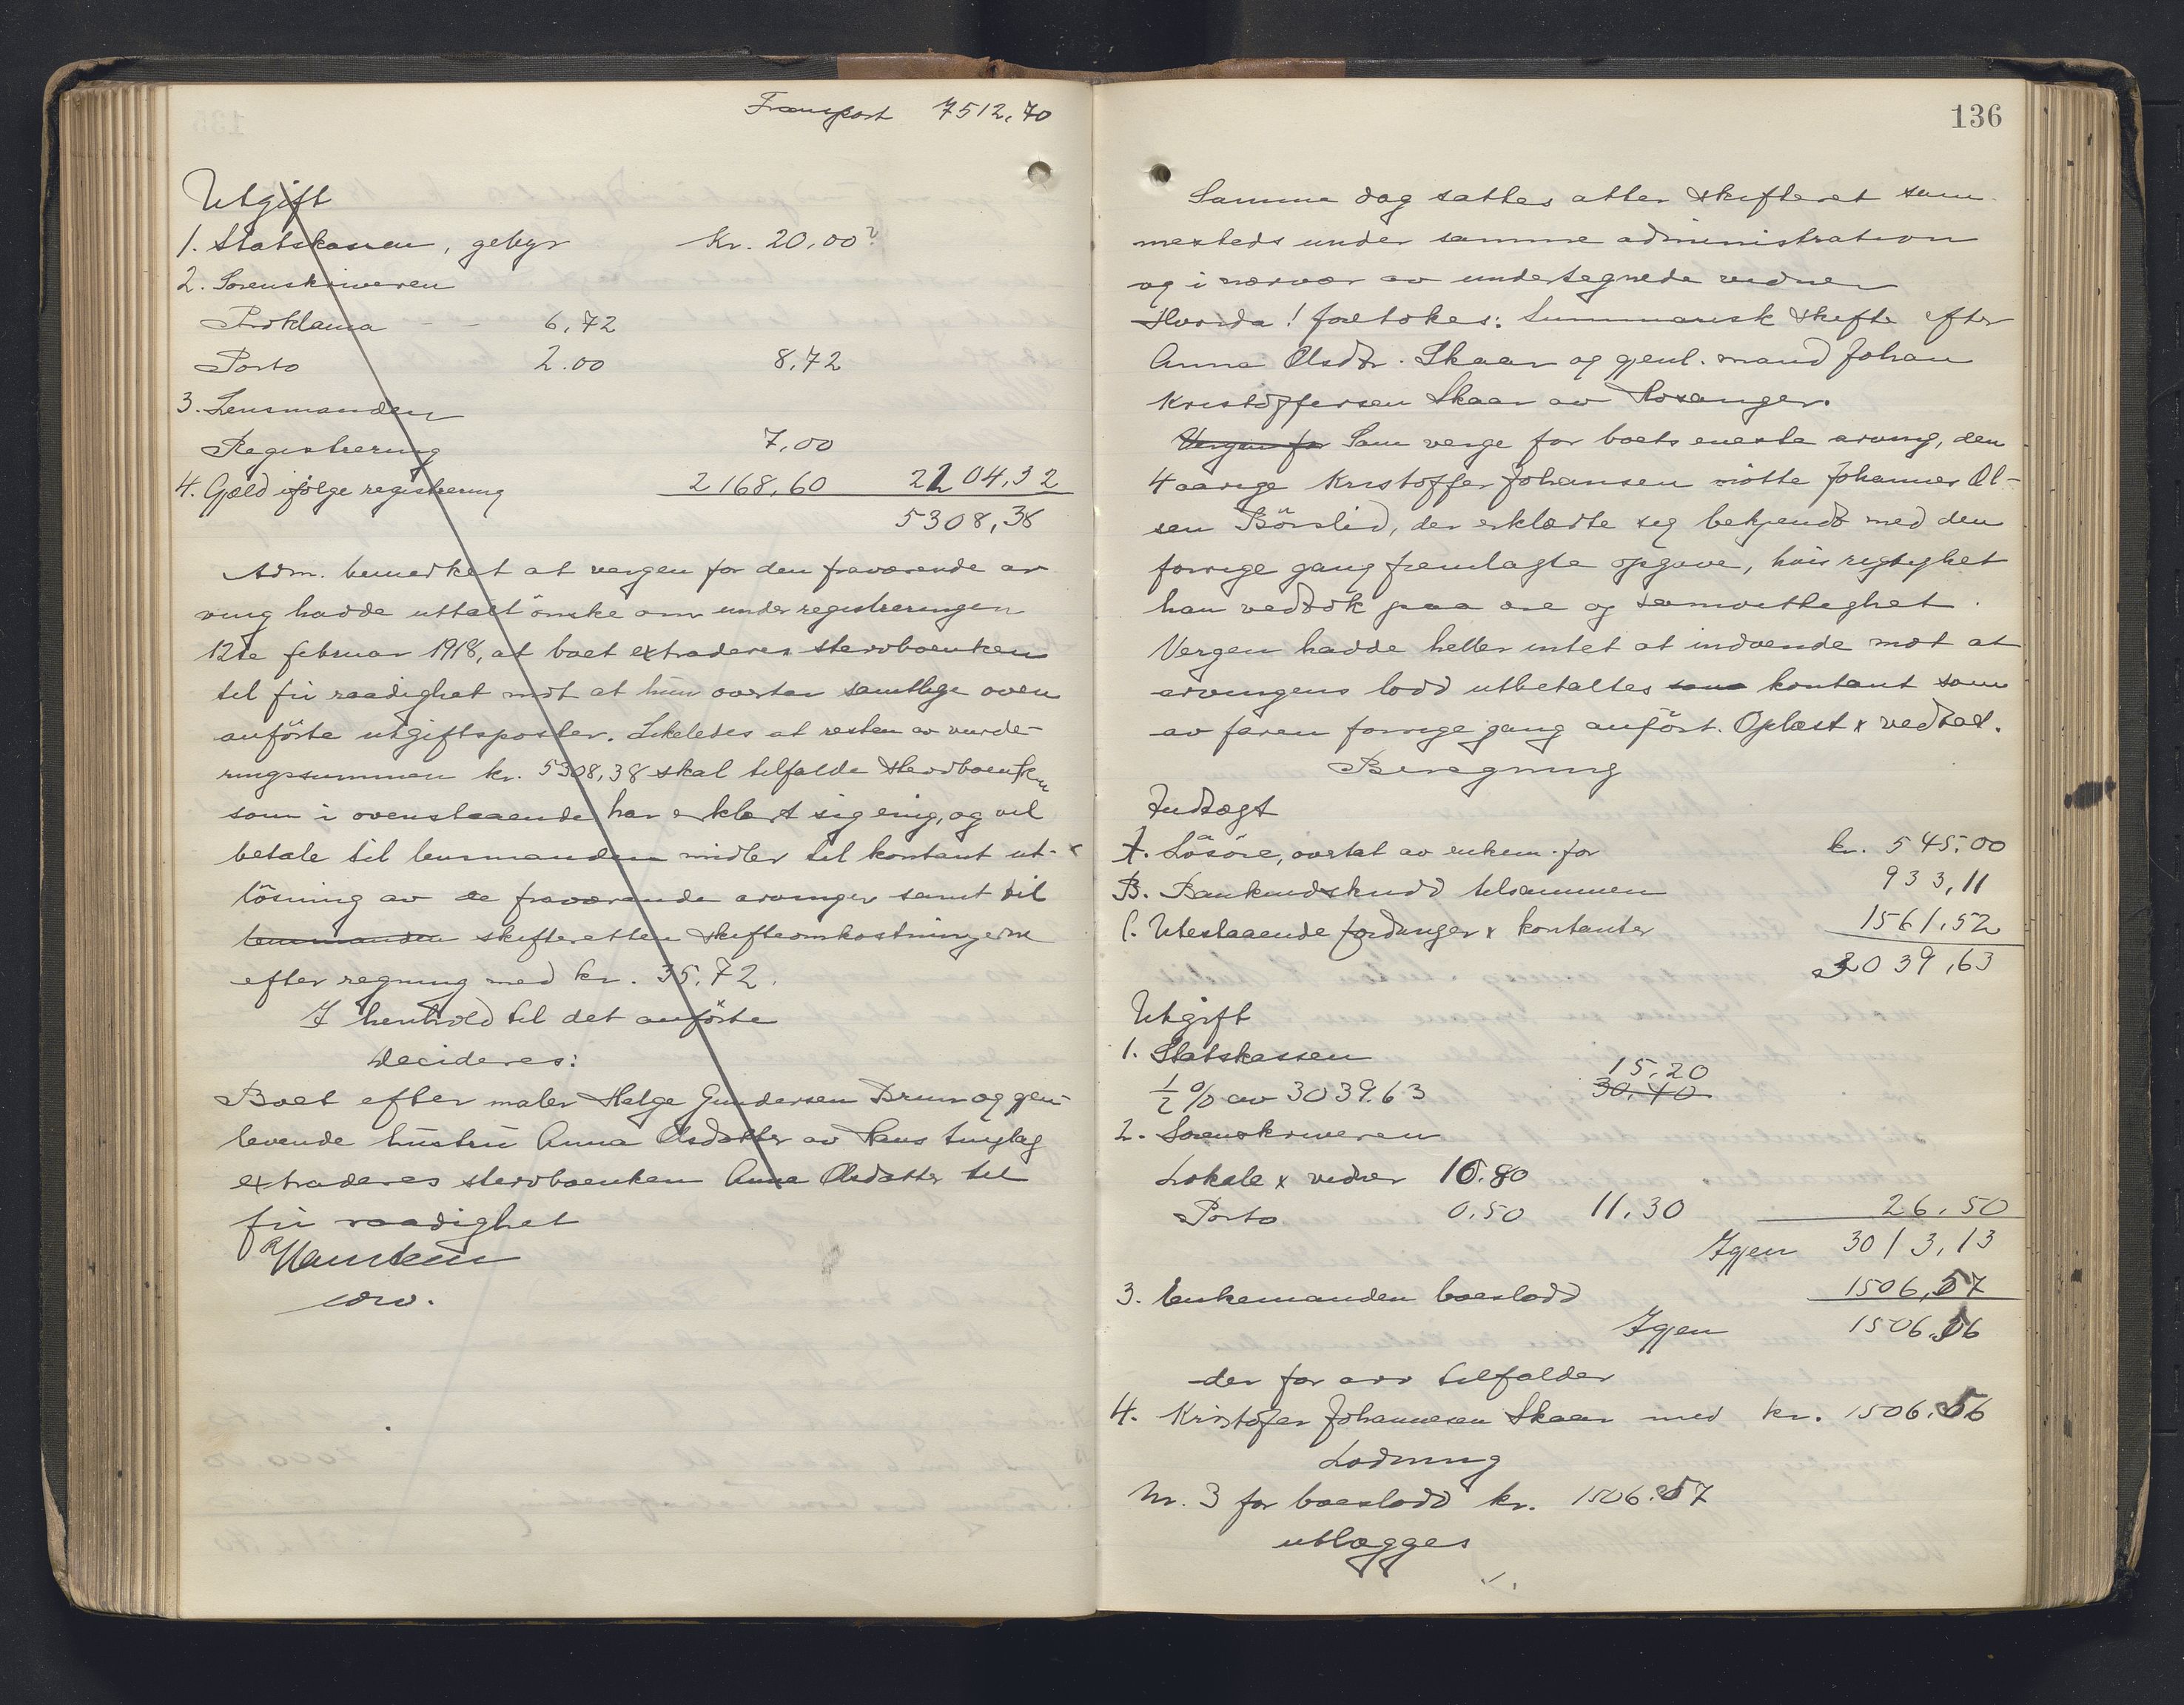 Transport 7512,70
Utgift
1. Statskassen, gebyr Kr. 20,00
2. Sorenskriveren
Proklama - - 6,72
Porto 2.00 8,72
3. Lensmanden
Registrering 7,00
4. Gjæld ifölge registrering 2168,60 2204,32
5308,38
Adm. bemerket at vergen for den fraværende ar
ving hadde uttalt önske om under registreringen
12te februar 1918, at boet extraderes stervboenken
til fri raadighet mot at hun overtar samtlige oven
anförte utgiftsposter. Likeledes at resten av vurde-
ringssummen kr. 5308,38 skal tilfalde stervboenken
som i ovenstaaende har erklært sig enig, og vil
betale til lensmanden midler til kontant ut-
lösning av de fraværende arvinger samt til
lensmanden skifteretten skifteomkostningerne
efter regning med kr. 35,72.
I henhold til det anförte
Decideres:
Boet efter maler Helge Gundersen Brun og gjen-
levende hustru Anna Olsdatter av Haus tinglag
extraderes stervboenken Anna Olsdatter til
fri raadighet
const.
136
Samme dag sattes atter skifteret sam
mesteds under samme administration
og i nærvær av undertegnede vidner
Hvorda! foretokes: Summarisk skifte efter
Anna Olsdtr. Skaar og gjenl. mand Johan
Kristoffersen Skaar av Hosanger.
Vergen for Som verge for boets eneste arving, den
4 aarige Kristoffer Johansen mötte Johannes Ol-
sen Börslid, der erklærte sig bekjendt med den
forrige gang fremlagte opgave, hvis rigtighet
han vedtok paa ære og samvittighet.
Vergen hadde heller intet at indvende mot at
arvingens lodd utbetaltes som kontant som
av faren forrige gang anfört. Oplæst & vedtat.
Beregning
Indtægt
A. Lösöre, overtat av enkem. for kr. 545,00
B. Bankindskudd tilsammen 933,11
C. Utestaaende fordringer & kontanter 1561,52
3039,63
Utgift
1. Statskassen
1/2 % av 3039.63 15,20 30,40
2. Sorenskriveren
Lokale & vidner 10.80
Porto 0,50 11,30 26,50
Igjen 3013,13
3. Enkemanden boeslodd 1506,57
Igjen 1506,56
der for arv tilfalder
4. Kristofer Johannesen Skaar med kr. 1506,56
Lodning
Nr. 3 for boeslodd kr. 1506.57
utlægges